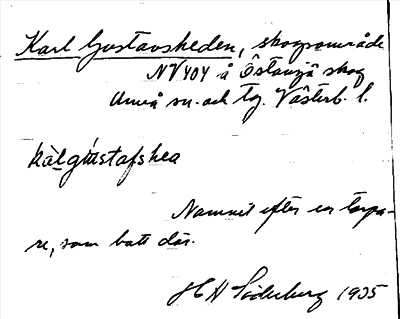 Karl Gustavsheden, skogsområde
NV 404 å Östansjö skog
Umeå sn. och tg. Västerb. l.
kàlgùstafshea
Namnet efter en torpa-
re, som bott där.
H A Söderberg 1935